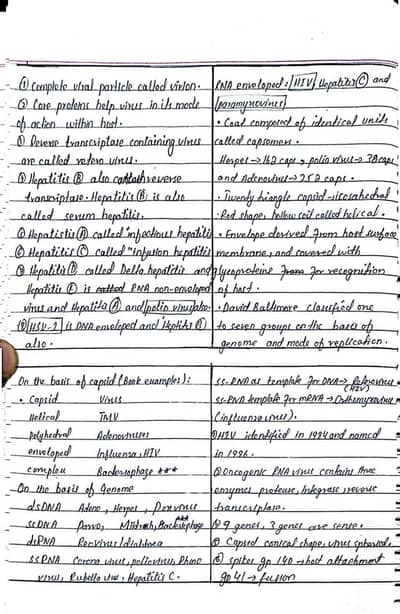 ① Complete viral particle called virion.
② Core proteins help virus in its mode
of action within host.
③ Reverse transcriptase containing virus
are called retero virus.
④ Hepatitis Ⓑ also reverse
transcriptase. Hepatitis Ⓑ is also
called serum hepatitis.
Hepatistis Ⓐ called "infectious hepatitis
Hepatitis Ⓒ called "Infusion hepatitis
Hepatitis Ⓓ called Delta hepatitis and
Hepatitis Ⓔ is called RNA non-enveloped
virus and Hepatitis Ⓐ and polio virus also.
HSV-1 is DNA enveloped and Heptitis Ⓑ
also.
RNA enveloped: HIV, Hepatitis Ⓒ and
paramyxovirus
• Coat composed of identical units
called capsomers.
Herpes→162 caps, polio virus→38 caps
and Adenovirus→252 caps.
• Twenty triangle capsid→icosahedral
• Rod shape, hollow coil called helical.
• Envelope derived from host surface
membrane, and covered with
glycoproteins for recognition
of host.
• David Baltimore classified one
to seven groups on the basis of
genome and mode of replication.
On the basis of capsid (Book examples):
• Capsid Virus
Helical TMV
Polyhedral Adenoviruses
enveloped Influenza, HIV
complex Bacteriophage ***
On the basis of Genome
dsDNA Adeno, Herpes, Pox virus
ssDNA Parvo, Bacteriophage
dsRNA Reovirus/diahhrea
ssRNA Corona virus, polio virus, Rhino
virus, Rubella virus, Hepatitis C.
ss-RNA as template for DNA→Retrovirus
(HIV)
ss-RNA template for mRNA→Orthomyxovirus
(influenza virus).
① HIV identified in 1984 and named
in 1986.
② Oncogenic RNA virus contains three
enzymes protease, Integrase, reverse
transcriptase.
9 genes, 3 genes are sense.
Capsid conical shape, virus spherical.
spikes gp 140→host attachment
gp 41→fusion